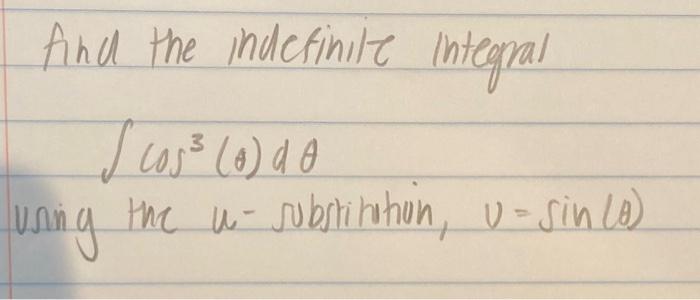 find the indefinite integral
∫ cos³ (θ) d θ
using the u- substitution, u = sin (θ)